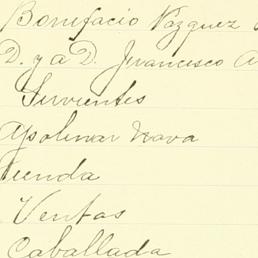 Bonifacio Vazquez
D. y a D. Francisco A
Sirvientes
Apolinar Nava
Tienda
Ventas
Caballada